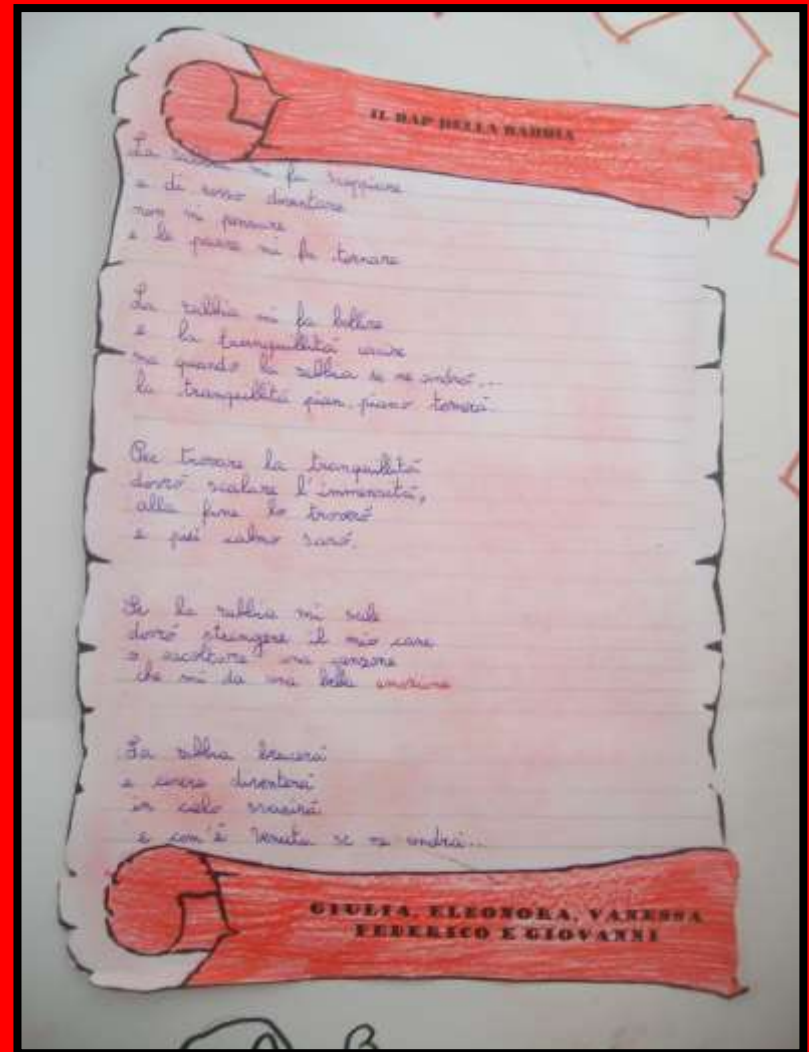 IL RAP DELLA RABBIA
La rabbia mi fa scoppiare
e di rosso diventare
non mi
e la paura mi fa tornare
La rabbia mi fa bollire
e la tranquillitá
ma quando la rabbia se ne andrá...
la tranquillitá pian piano tornerá
Per trovare la tranquillitá
dovró scalare l'immensitá,
alla fine la troveró
e piú calmo saró.
Se la rabbia mi sale
dovró stringere il mio cane
o ascoltare una canzone
che mi da una bella emozione
La rabbia brucerá
e cenere diventerá
in cielo svanirá
e com'é venuta se ne andrá...
GIULIA, ELEONORA, VANESSA
FEDERICO E GIOVANNI